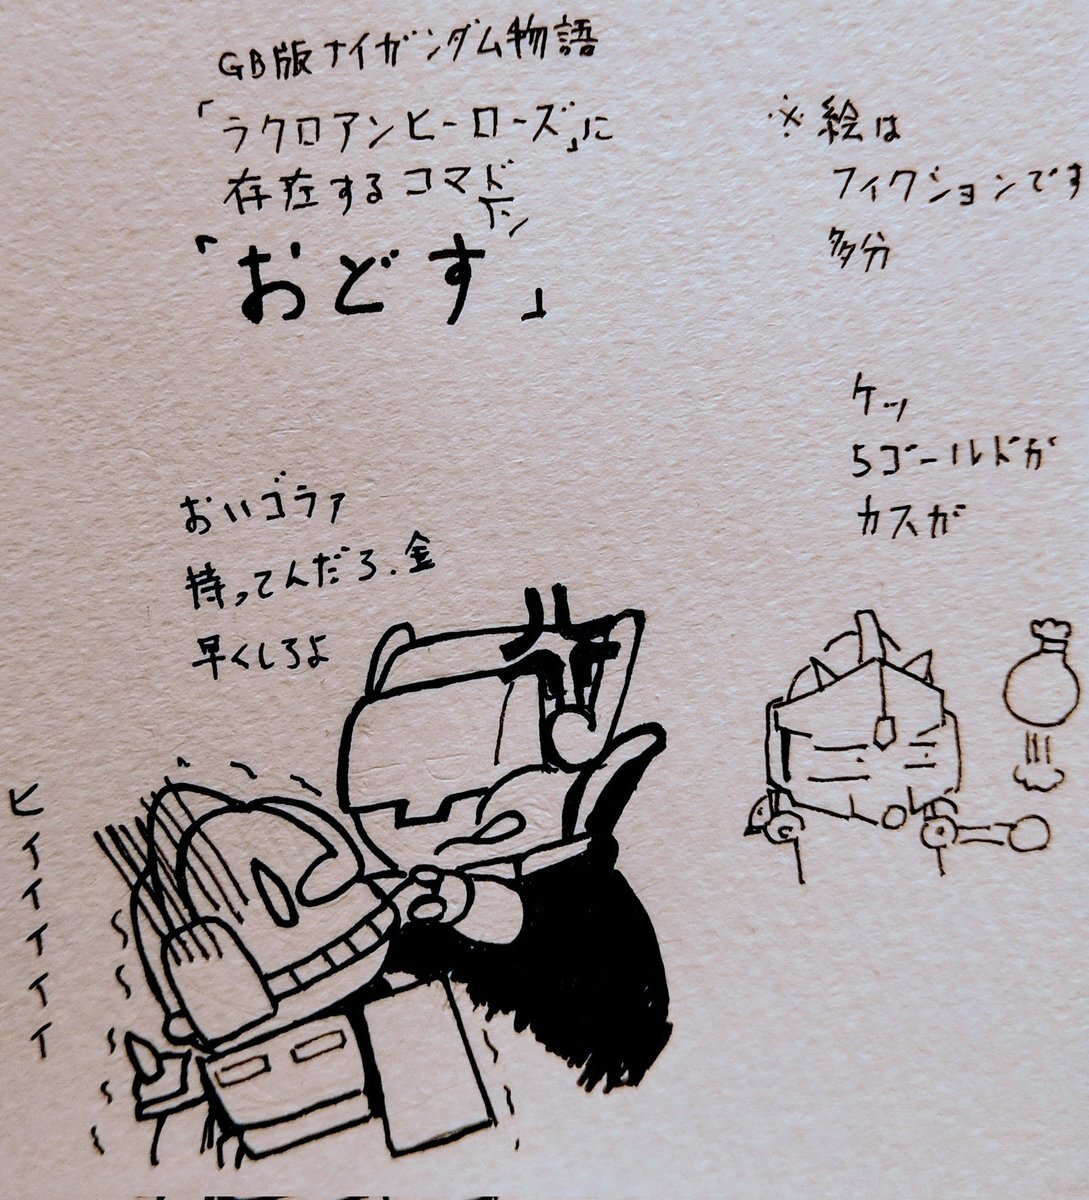 GB版ナイガンダム物語
「ラクロアンヒーローズ」に
存在するコマンド
「おどす」
※絵は
フィクションです
多分
ケッ
5ゴールドか
カスが
おいゴラァ
持ってんだろ.金
早くしろよ
ヒイイイイイ